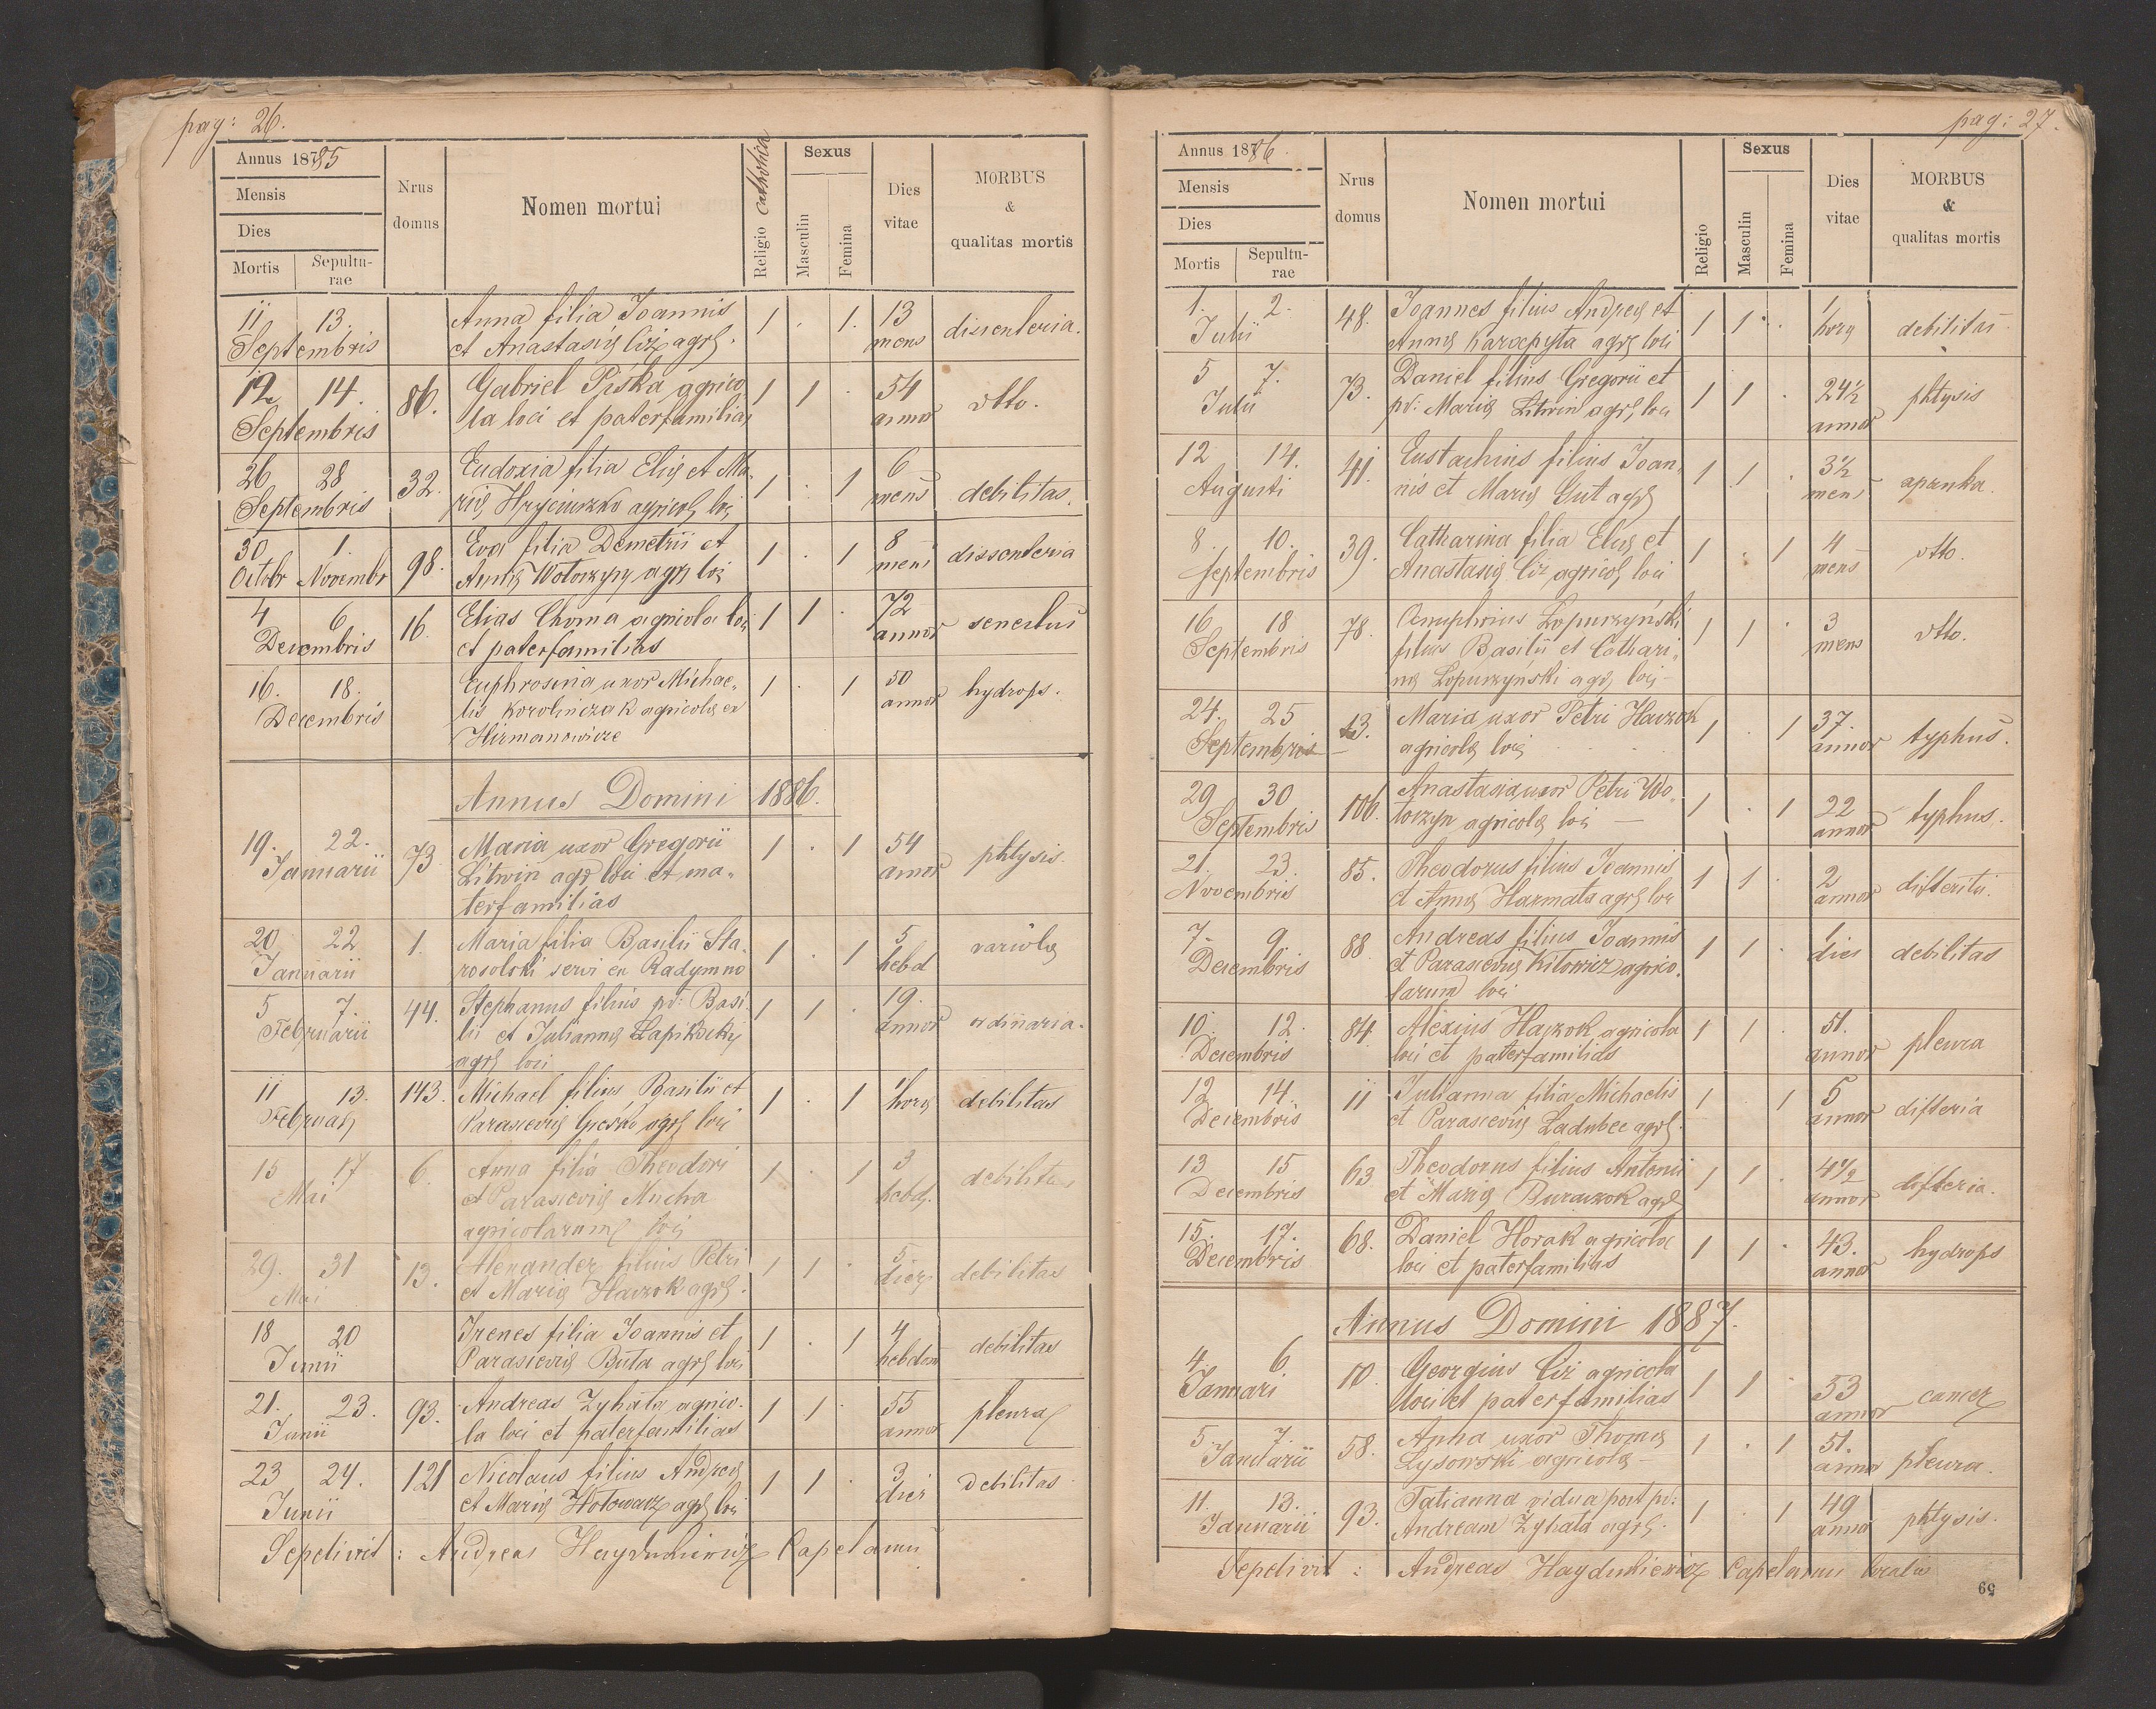 pag: 26.
Annus 1885
Mensis
Dies
Mortis Sepultu-
rae
Nrus
domus
Nomen mortui
Religio catholica
Sexus
Masculin
Femina
Dies
vitae
MORBUS
&
qualitas mortis
11 13. Anna filia Joannis 1 . 1. 13 dissenteria.
Septembris et Anastasię Ciż agrę. mens
12 14. 86. Gabriel Piśka agrico 1 1 . 54 dtto.
Septembris la loci et paterfamilias annor
26 28 32. Eudoxia filia Elię et Ma- 1 . 1 6 debilitas.
Septembris rię Hryciuszko agricol loci mens
30 1. 98. Eva filia Demetrii et 1 . 1 8 dissenteria
Octobr Novembr Annę Wołoszyn agrę loci mens
4 6 16. Elias Choma agricola loci 1 1 . 72 senectus
Decembris et paterfamilias annor
16. 18. Euphrosina uxor Michae- 1 . 1 50 hydrops.
Decembris lis Korolinczak agricolę ex annor
Hirmanowice
Annus Domini 1886.
19. 22. 73 Maria uxor Gregorii 1 . 1 54 phtysis.
Januarii Litwin agr loci et ma- annor
terfamilias
20 22 1. Maria filia Basilii Sta- 1 . 1 5 variolę
Januarii rosolski servi ex Radymno hebd
5 7. 44. Stephanus filius pd: Basi- 1 1 . 19. ordinaria.
Februarii lii et Juliannę Łapikocky annor
agrę loci
11 13. 143. Michael filius Basilii et 1 . 1 1 horę debilitas
Februarę Parascevię Gresko agrę loci
15 17 6. Anna filia Theodori 1 . 1 3 debilitas
Mai et Parascevię Mucha hebd.
agricolarum loci
29. 31 13. Alexander filius Petri 1 1 . 5. debilitas
Mai et Marię Hawzok agrę. dier
18 20 Irenes filia Joannis et 1 . 1 4 debilitas
Junii Parascevię Buta agrę loci hebdom
21. 23. 93. Andreas Zyhała agrico- 1 1 . 55 pleura
Junii la loci et paterfamilias annor
23 24. 121 Nicolaus filius Andreę 1 1 . 3 Debilitas
Junii et Marię Wołowacz agrę loci dies
Sepelivit: Andreas Haydukiewicz Capelanus
pag: 27.
Annus 1886.
Mensis
Dies
Mortis Sepultu-
rae
Nrus
domus
Nomen mortui
Religio
Sexus
Masculin
Femina
Dies
vitae
MORBUS
&
qualitas mortis
1. 2. 48. Joannes filius Andreę et 1 1 . 1 debilitas
Julii Annę Karapyta agrę loci horę
5 7. 73. Daniel filius Gregorii et 1 1 . 24½ phtysis
Julii pd: Marię Litwin agrę loci annor
12 14. 41. Eustachius filius Joan- 1 1 . 3½ apenka.
Augusti nis et Marię Gut agrę mens
8. 10. 39. Catharina filia Elię et 1 . 1 4 dtto.
Septembris Anastasię Ciż agricol loci mens
16 18 78. Onuphrius Łopuszyński 1 1 . 3 dtto.
Septembris filius Basilii et Cathari- mens
nę Łopuszyński agrę loci -
24. 25 13. Maria uxor Petri Hawzok 1 . 1 37. typhus.
Septembris agricolę loci annor
29 30 106. Anastasia uxor Petri Wo- 1 . 1 22 typhus.
Septembris łoszyn agricolę loci - annor
21. 23. 85. Theodorus filius Joannis 1 1 . 2 difteritis.
Novembris et Annę Harmata agrę loci annor
7. 9. 88 Andreas filius Joannis 1 1 . 1 debilitas
Decembris et Parascevię Kitowicz agrico- dies
larum loci
10. 12. 84. Alexius Hawzok agricola 1 1 . 51. pleura
Decembris loci et paterfamilias annor
12 14. 11 Julianna filia Michaelis 1 . 1 5 difteria
Decembris et Parascevię Ladubec agrę. annor
13 15 63 Theodorus filius Antonii 1 1 . 4½ difteria.
Decembris et Marię Burawzok agrę annor
15. 17. 68. Daniel Horak agricola 1 1 . 43. hydrops
Decembris loci et paterfamilias annor
Annus Domini 1887.
4. 6 10. Georgius Ciż agricola 1 1 . 53 cancer
Januari loci et paterfamilias annor
5 7. 58. Anna uxor Thomę 1 . 1 51. pleura.
Januarii Łysowski agricolę - annor
11. 13. 93. Tatianna vidua post pd: 1 . 1 49 phtysis.
Januarii Andream Zyhała agrę. annor
Sepelivit: Andreas Haydukiewicz Capelanus localis
59